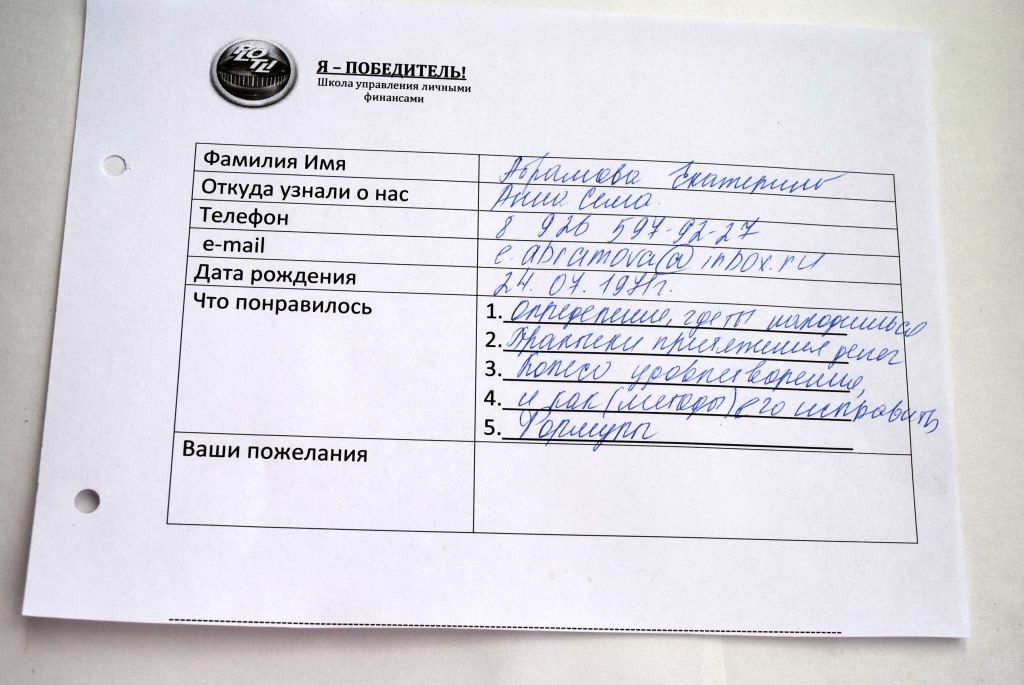 Я – ПОБЕДИТЕЛЬ!
Школа управления личными
финансами
Фамилия Имя Абрамова Екатерина
Откуда узнали о нас Анна Сема.
Телефон 8 926 597-92-27
e-mail e.abramova@inbox.ru
Дата рождения 24. 07. 1971г.
Что понравилось
1. Определение, где ты находишься
2. притяжения денег
3. Колесо удовлетворения,
4. и как (методы) его исправить
5. Формулы
Ваши пожелания